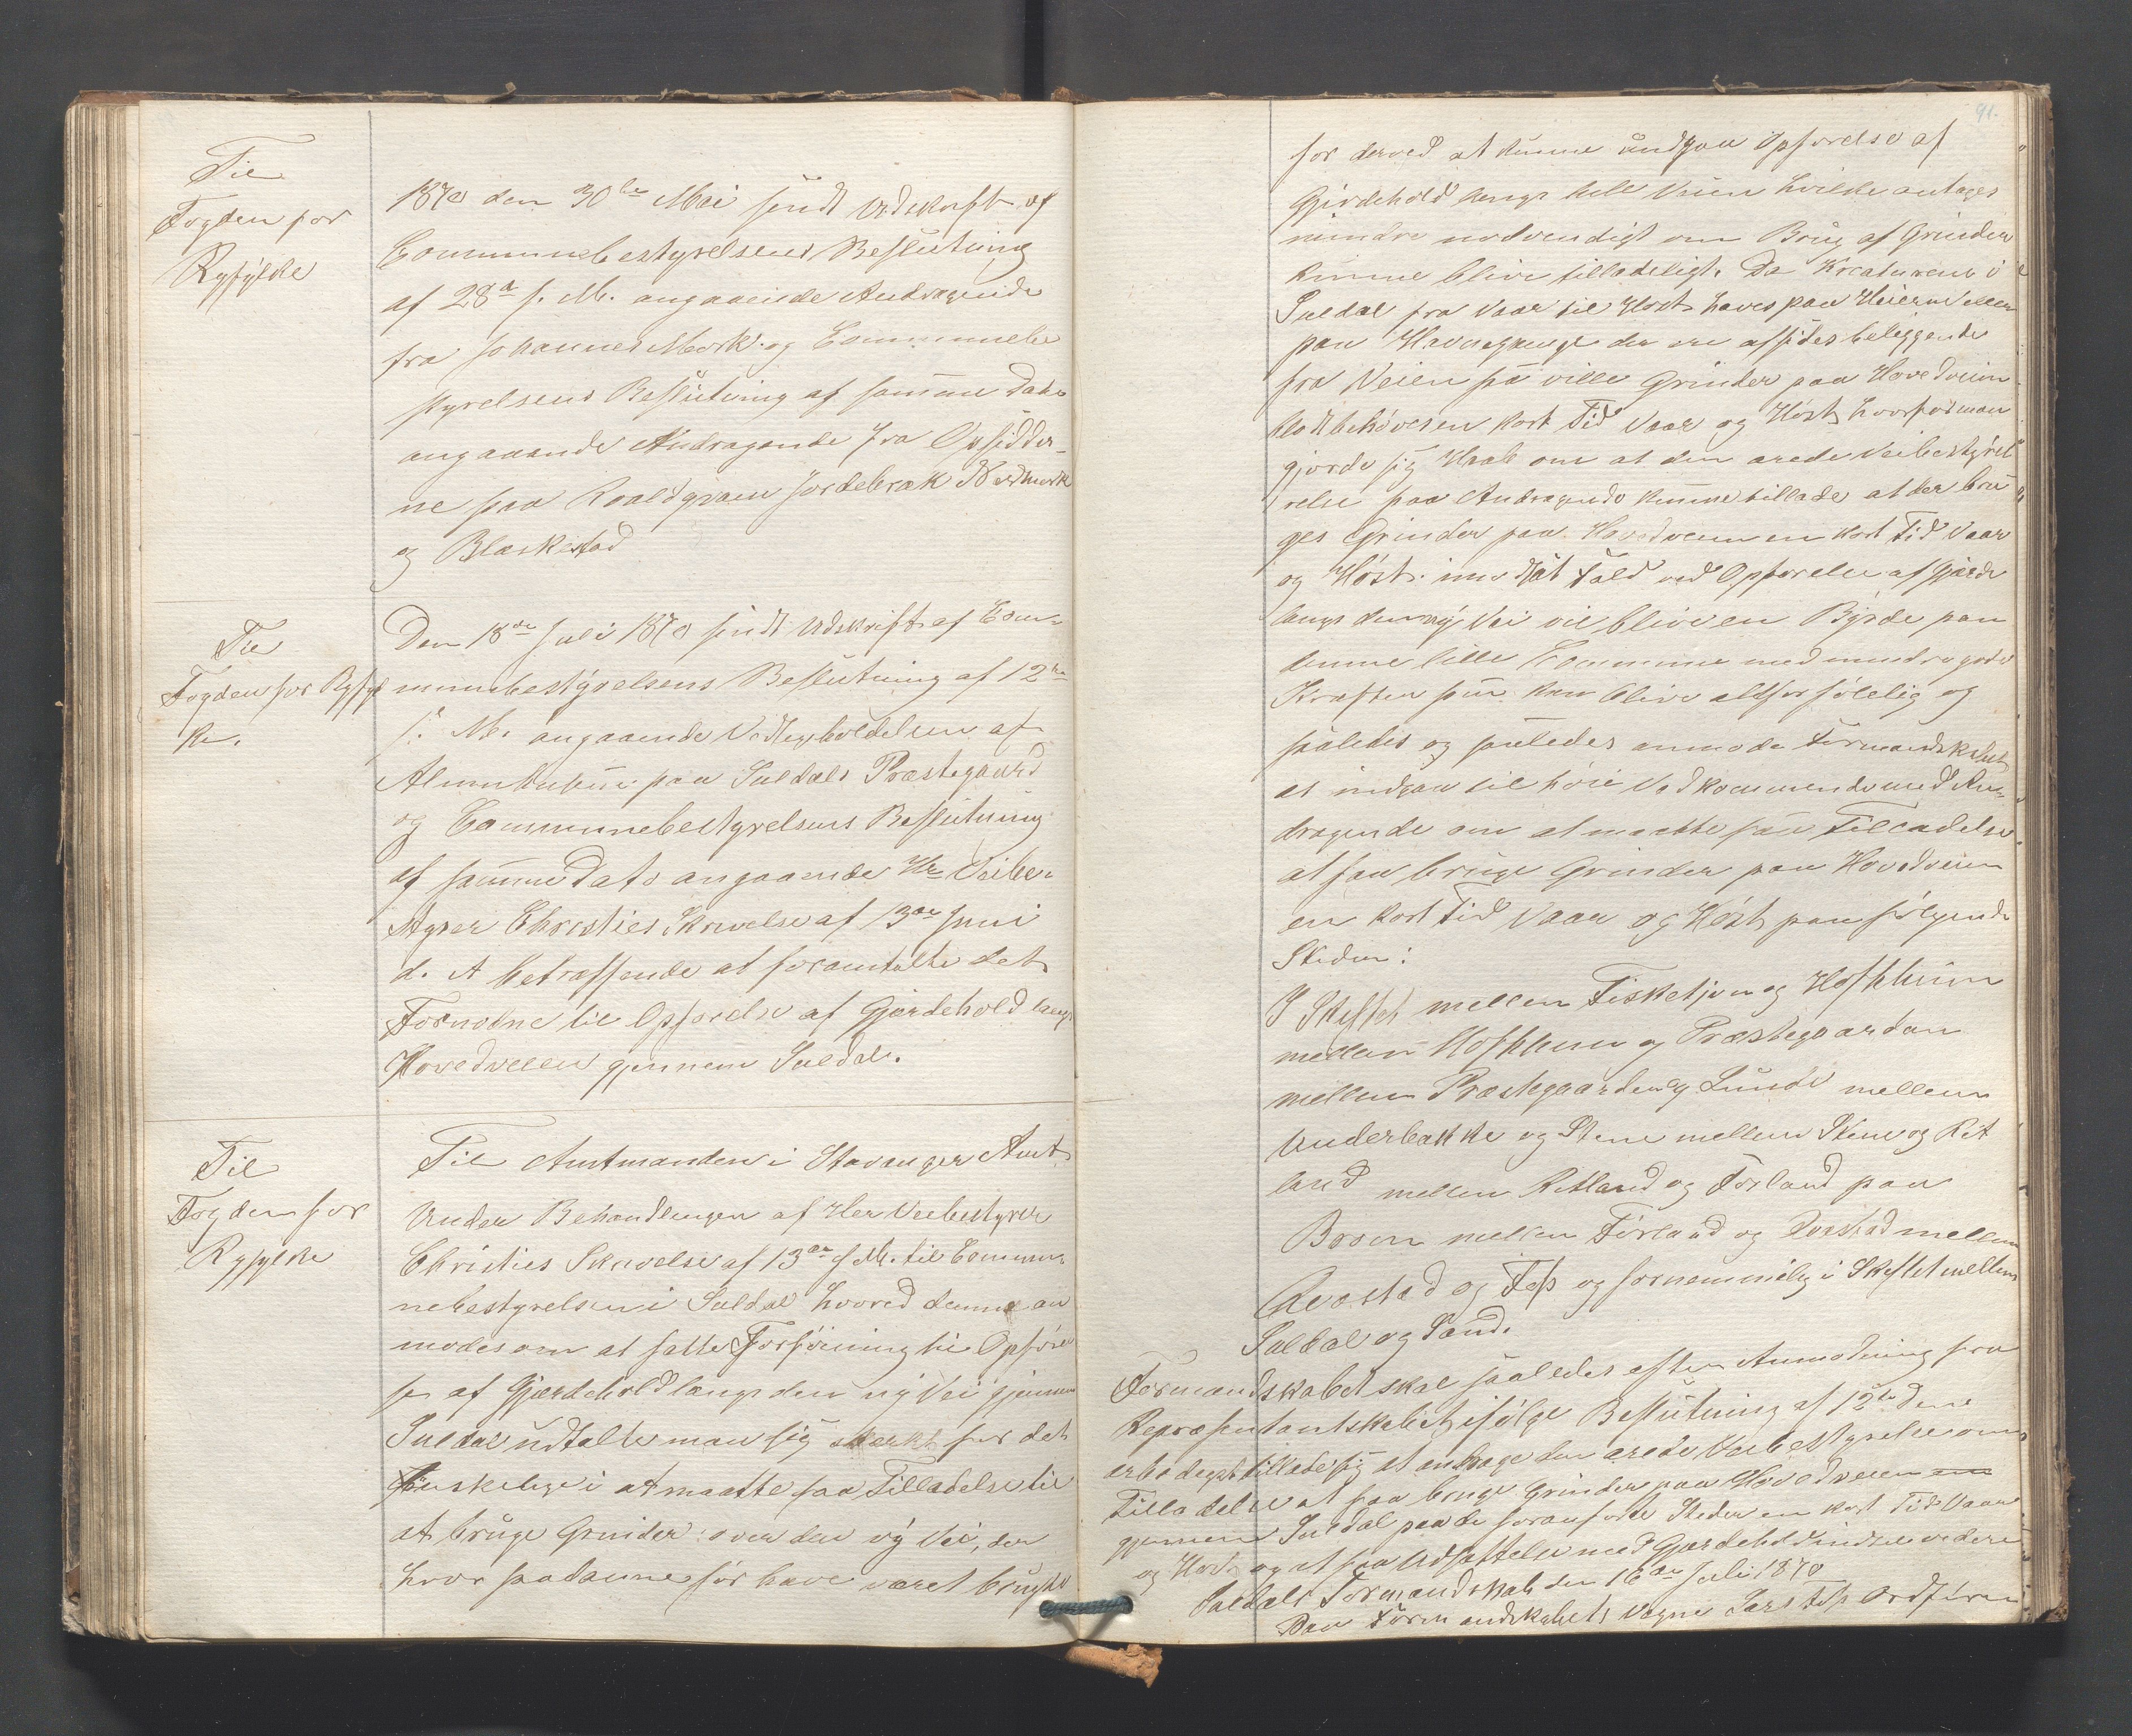 Til
Fogden for
Ryfylke
1870 den 30te Mai sendt Udskrift af
Communebestyrelsens Beslutning
af 28de f. M. angaaende Andragende
fra Johannes Mork og Communebe
styrelsens Beslutning af samme Dato
angaaende Andragende fra Opsidder-
ne paa Roaldqvam Jordebræk Nordmork
og Bleskestad
Til
Fogden for Ryfyl
ke.
Den 18de Juli 1870 sendt Udskrift af Com-
munebestyrelsens Beslutning af 12te
s. M. angaaende Vedligeholdelsen af
paa Suldals Præstegaard
og Communebestyrelsens Beslutning
af samme Dato angaaende Hr Veibe-
styrer Christies Skrivelse af 13de Juni
d. A betræffende at foranstalte det
Fornødne til Opførelse af Gjærdehold langs
Hovedveien gjennem Suldal.
Til
Fogden for
Ryfylke
Til Amtmanden i Stavanger Amt
Under Behandlingen af Her Veibestyrer
Christies Skrivelse af 13de f. M. til Commu-
nebestyrelsen i Suldal hvorved denne an
modes om at fatte Forføining til Opførel
se af Gjærdehold langs den ny Vei gjennem
Suldal udtalte man sig stærkt for det
Ønskelige i at maatte faa Tilladelse til
at bruge Grinder over den ny Vei, der
hvor saadanne før have været brugte
91.
for derved at kunne undgaa Opførelse af
Gjærdehold langs hele Veien hvilke antages
mindre nødvendigt om Brug af Grinder
kunne blive tilladeligt. Da Kreaturene i
Suldal fra Vaar til Høst haves paa Heierne eller
paa Havnegange der ere afsides beliggende
fra Veien saa ville Grinder paa Hovedveien
blot behøves en kort Tid Vaar og Høst, hvorfor man
gjorde sig Haab om at den ærede Veibestyrel
relse paa Andragende kunne tillade at der bru
ges Grinder paa Hovedveien en kort Tid Vaar
og Høst. imodsat Fald ved Opførelse af Gjærde
langs den ny Vei vil blive en Byrde paa
denne lille Commune med mindre gode
Kræfter som kan blive altfor følelig og
saaledes og saaledes anmode Formandskabet
at indgaa til høie Vedkommende med An-
dragende om at maatte faa Tilladelse
at faa bruge Grinder paa Hovedveien
en kort Tid Vaar og Høst paa følgende
Steder:
I Skiftet mellem Fisketjøn og Hofshuun
mellem Hofshuun og Præstegaarden
mellem Præstegaarden og Lunde mellem
Underbakke og Stene mellem Stene og Rit
land mellem Ritland og Førland paa
Broen mellem Førland og Qvæstad mellem
Qvæstad og Foss og fornemmelig i Skiftet mellem
Suldal og Sand.
Formandskabet skal saaledes efter Anmodning fra
Repræsentantskabet ifølge Beslutning af 12te dene
ærbødigst tillade sig at andrage den ærede Veibestyrelse om
Tilladelse at faa bruge Grinder paa Hovedveien
gjennem Suldal paa de foranførte Steder en kort Tid Vaar
og Høst og at faa Udsættelse med Gjærdehold indtil videre
Suldals Formandskab den 16de Juli 1870
Paa Formandskabets Vegne Lars Foss Ordfører